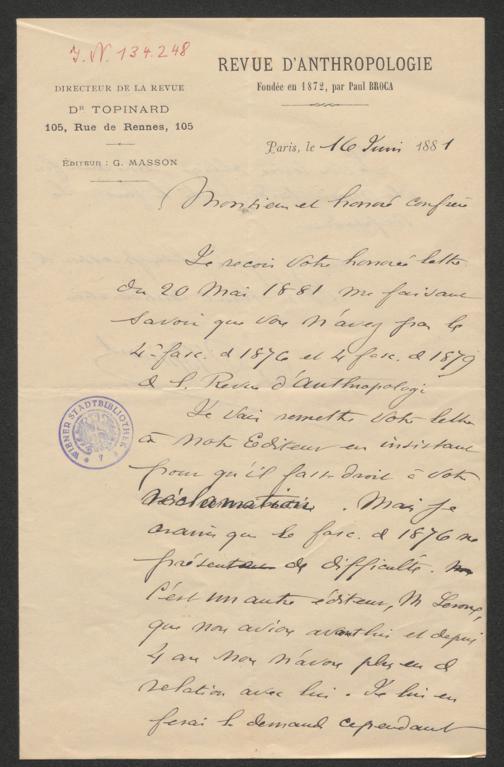 I. N. 134.248
REVUE D'ANTHROPOLOGIE
Fondée en 1872, par Paul BROCA
DIRECTEUR DE LA REVUE
Dr TOPINARD
105, Rue de Rennes, 105
ÉDITEUR : G. MASSON
Paris, le 16 Juin 1881
Monsieur et honoré confrère
Je reçois votre honorée lettre
du 20 Mai 1881 me faisant
savoir que vous n'avez pas le
4e fasc. d 1876 et 4 fasc. d 1879
d l. Revue d'Anthropologi
Je vais remettre votre lettre
à notre Editeur en insistant
pour qu'il fasse droit à votre
réclamation. Mais je
crains que le fasc. d 1876 ne
présente de difficulté.
C'est un autre éditeur, M Leroux,
que nous avions avant lui et depuis
4 ans nous n'avons plus eu d
relation avec lui. Je lui en
ferai l. demande cependant
WIENER STADTBIBLIOTHEK